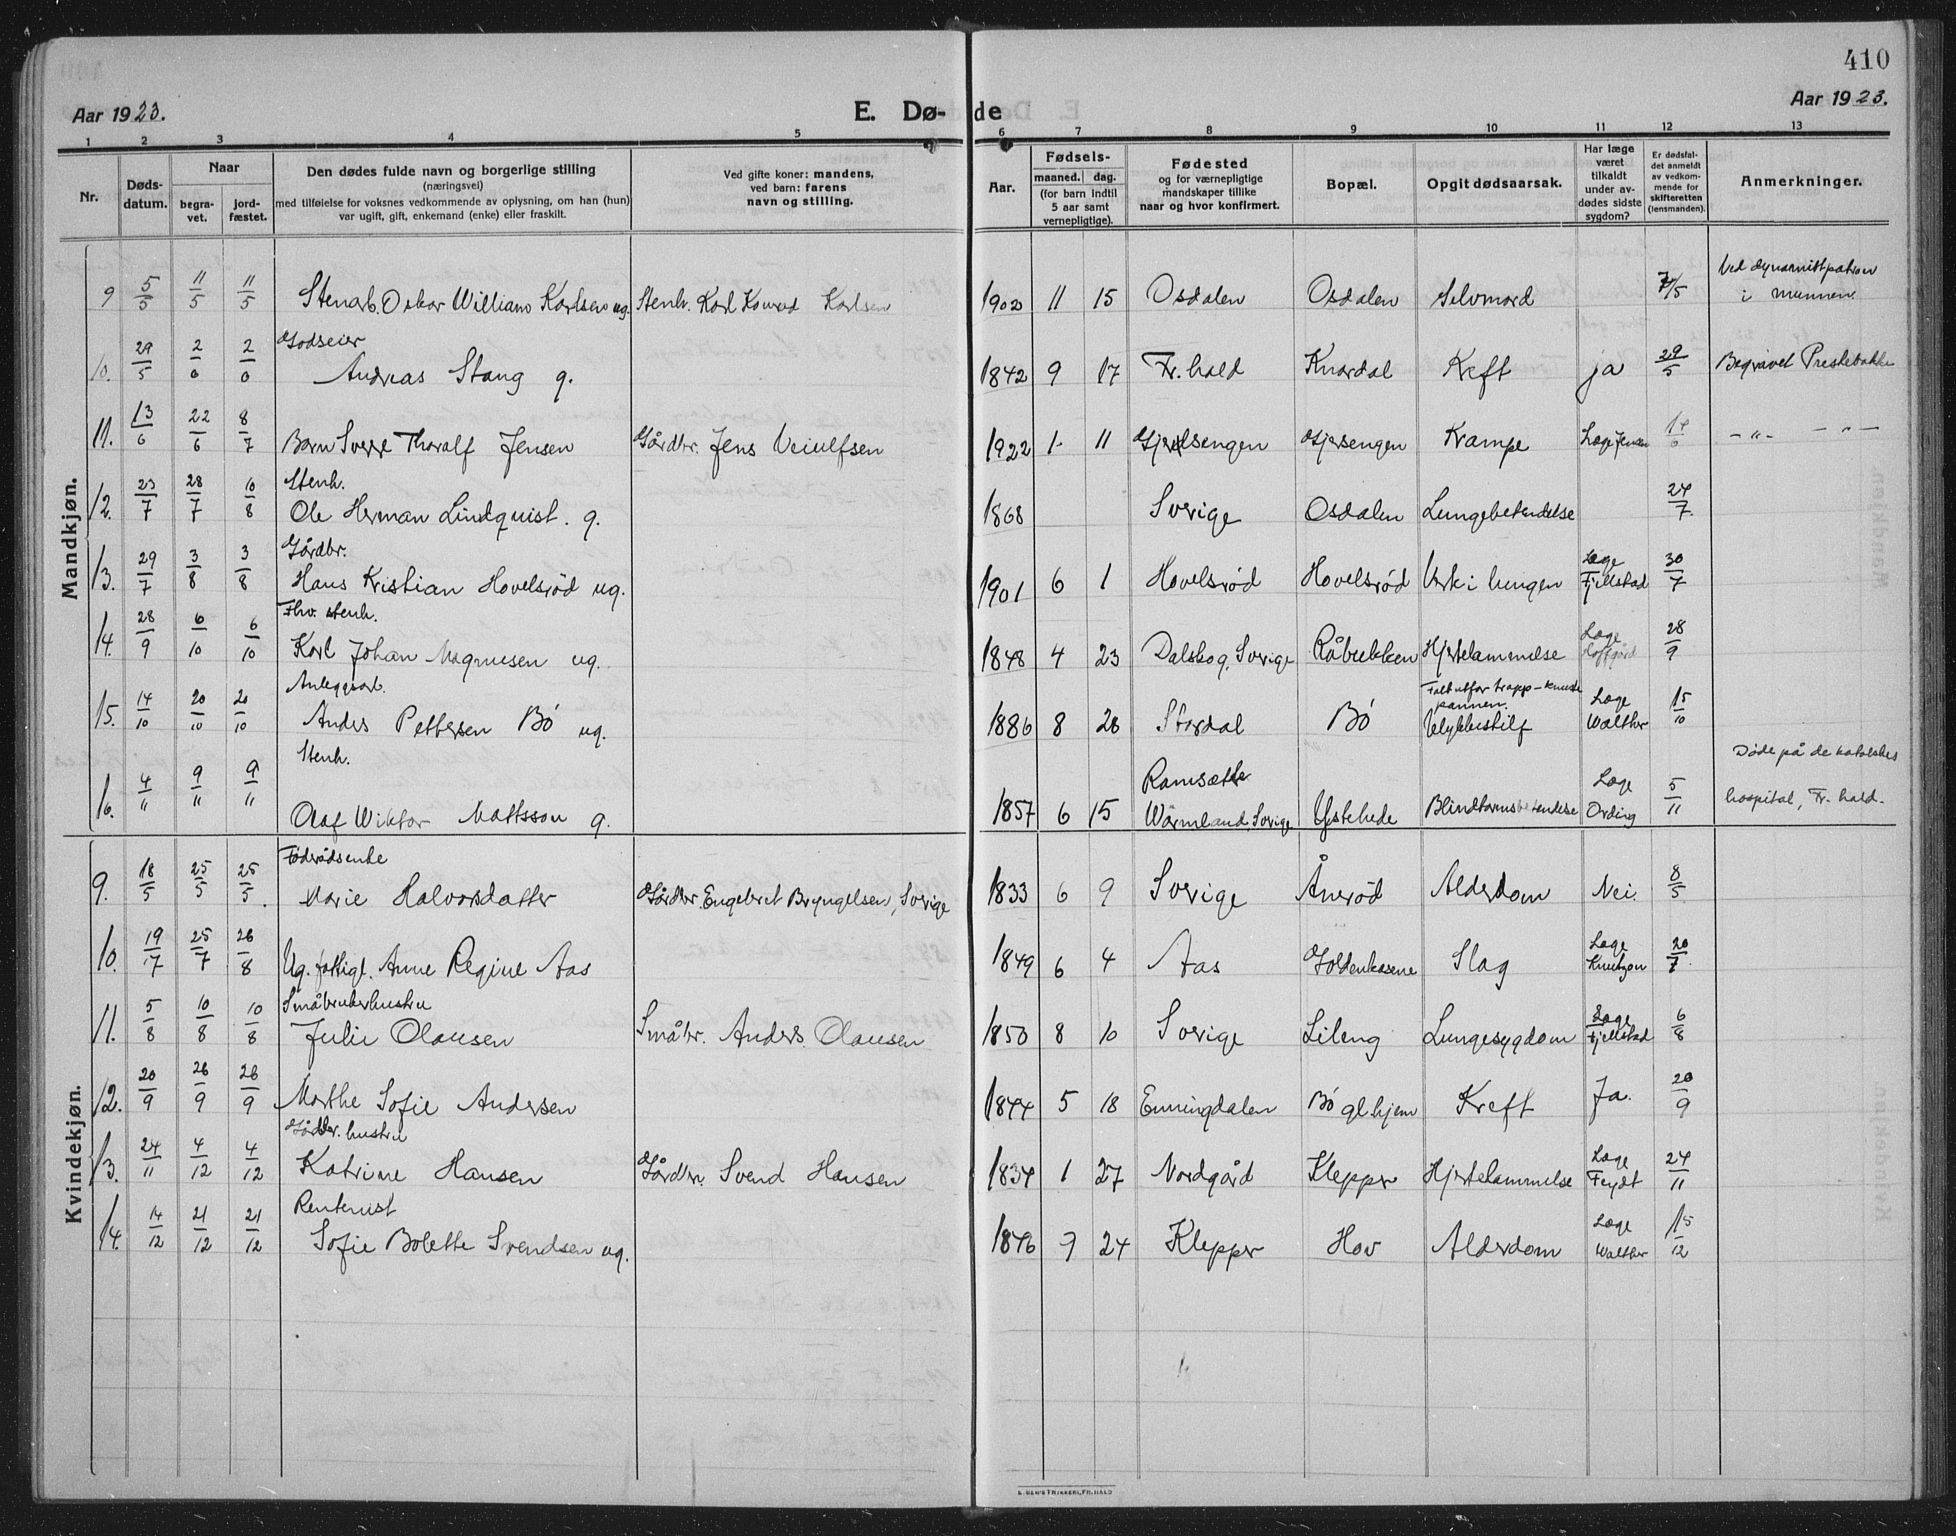 410
Aar 1923.
E. Dø-
de
Aar 1923.
1 2 3 4 5 6 7 8 9 10 11 12 13
Nr.
Døds-
datum.
Naar
begra-
vet.
jord-
fæstet.
Den dødes fulde navn og borgerlige stilling
(næringsvei)
med tilføielse for voksnes vedkommende av oplysning, om han (hun)
var ugift, gift, enkemand (enke) eller fraskilt.
Ved gifte koner: mandens,
ved barn: farens
navn og stilling.
Aar.
Fødsels-
maaned. dag.
(for barn indtil
5 aar samt
vernepligtige).
Fødested
og for værnepligtige
mandskaper tillike
naar og hvor konfirmert.
Bopæl.
Opgit dødsaarsak.
Har læge
været
tilkaldt
under av-
dødes sidste
sygdom?
Er dødsfal-
det anmeldt
av vedkom-
mende for
skifteretten
(lensmanden).
Anmerkninger.
Mandkjøn.
9 5/5 11/5 11/5 Stenarb. Oskar William Karlsen ug. Stenh. Karl Konrad Karlsen 1902 11 15 Osdalen Osdalen Selvmord 7/5 Ved dynamitpatron
i munnen.
Godseier
10. 29/5 2/6 2/6 Andreas Stang g. 1842 9 17 Fr.hald Knardal Kreft ja 29/5 Begravet Prestebakke
11. 13/6 22/6 8/7 Barn Sverre Thoralf Jensen Gårdbr. Jens Veiulfsen 1922 1 11 Gjerlsengen Gjersengen Krampe Læge Jensen 14/6 -"- -"-
Stenh.
12. 23/7 28/7 10/8 Ole Herman Lindquist. g. 1868 Sverige Osdalen Lungebetendelse 24/7.
Gårdbr.
13. 29/7 3/8 3/8 Hans Kristian Hovelsrød ug. 1901 6 1 Hovelsrød Hovelsrød Verk i lungen Læge
Fjellstad 30/7
Fhv. stenh.
14. 28/9 6/10 6/10 Karl Johan Magnusen ug. 1848 4 23 Dalskog, Sverige Råbekken Hjertelammelse Læge
28/9
Anleggsarb.
15. 14/10 20/10 20/10 Anders Pettersen Bø ug. 1886 8 28 Stordal Bø Falt utfor trapp - knuste
pannen.
Ulykkestilf Læge
Walther 15/10
Stenh.
16. 4/11 9/11 9/11 Olaf Wiktor Mattsson g. 1857 6 15 Ramsætte
Wärmland, Sverige Ystehede Blindtarmsbetendelse Læge
Ording 5/11 Døde på de katolskes
hospital, Fr.hald.
Kvindekjøn.
Føderådsenke
9. 18/5 25/5 25/5. Marie Halvorsdatter Gårdbr. Engebret Bryngelsen, Sverige 1833 6 9 Sverige Ånerød Alderdom Nei. 8/5
10. 19/7 25/7 26/8 Ug. fattigl. Anne Regine Aas 1849 6 4 Aas Goldenkasene Slag Læge
Knutzon 20/7.
Småbrukerhustru
11. 5/8 10/8 10/8 Julie Olausen Småbr. Anders Olausen 1850 8 10 Sverige Lileng Lungesygdom Læge
Fjellstad 6/8
12. 20/9 26/9 26/9 Marthe Sofie Andersen 1844 5 18 Enningdalen Bø glhjem Kreft Ja. 20/9
Gårdbr. hustru
13. 24/11 4/12 4/12 Katrine Hansen Gårdbr. Svend Hansen 1834 1 27 Nordgård Klepper Hjertelammelse Læge
Feydt 24/11
Rentenist
14. 14/12 21/12 21/12 Sofie Bolette Svendsen ug. 1846 9 24 Klepper Hov Alderdom Læge
Walther 15/12